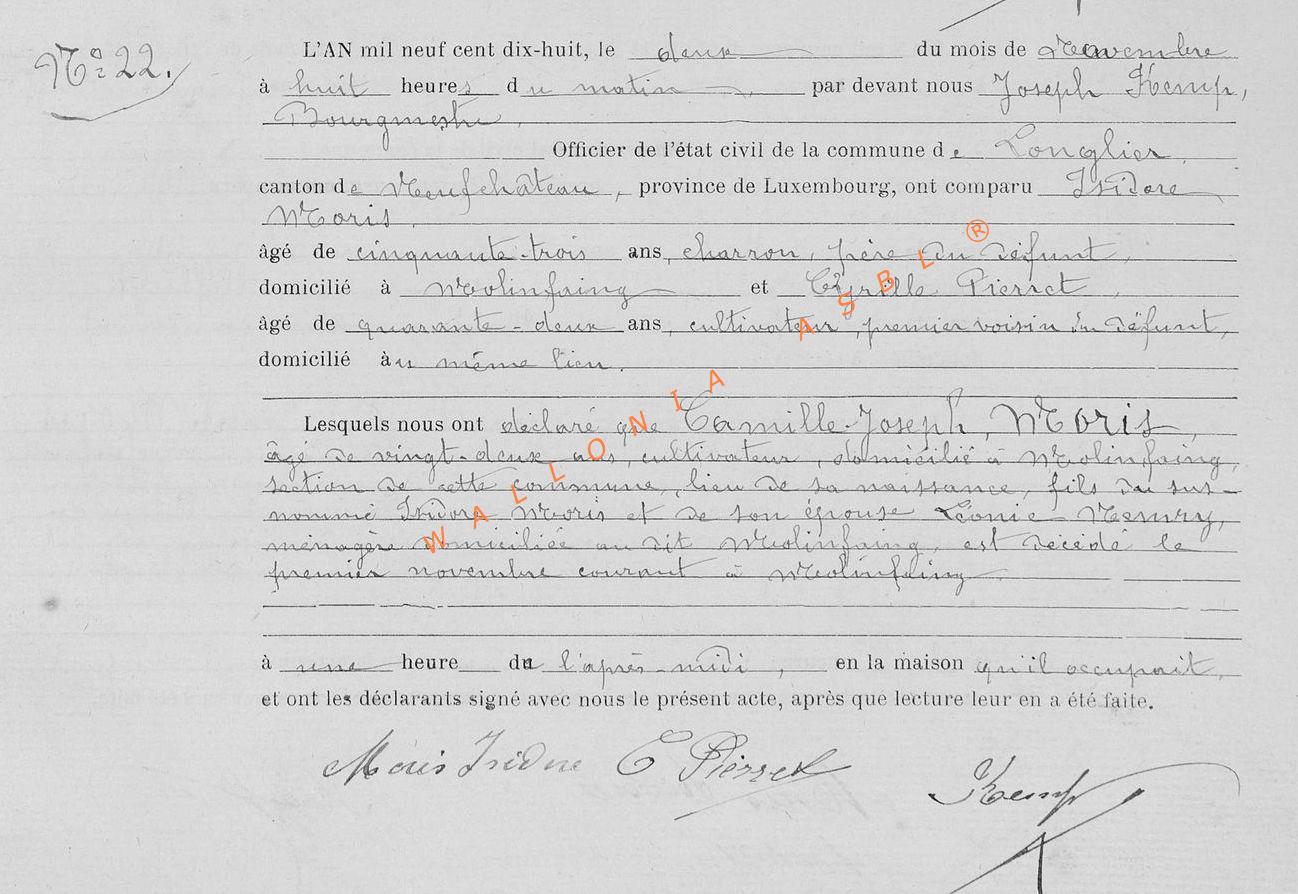 N° 22.
L'AN mil neuf cent dix-huit, le deux du mois de Novembre
à huit heures du matin, par devant nous Joseph Kemp,
Bourgmestre,
Officier de l'état civil de la commune de Longlier,
canton de Neufchâteau, province de Luxembourg, ont comparu Isidore
Moris,
âgé de cinquante-trois ans, charron, père du défunt,
domicilié à Molinfaing et Cyrille Pierret
âgé de quarante-deux ans, cultivateur, premier voisin du défunt,
domicilié au même lieu.
Lesquels nous ont déclaré que Camille-Joseph, Moris,
âgé de vingt-deux ans, cultivateur, domicilié à Molinfaing,
section de cette commune, lieu de sa naissance, fils du sus-
nommé Isidore Moris et de son épouse Léonie Henry,
ménagère domiciliée au dit Molinfaing, est décédé le
premier novembre courant à Molinfaing
à une heure du l'après-midi, en la maison qu'il occupait,
et ont les déclarants signé avec nous le présent acte, après que lecture leur en a été faite.
Moris Isidore C Pierret
Kemp
WALLONIA ASBL ®